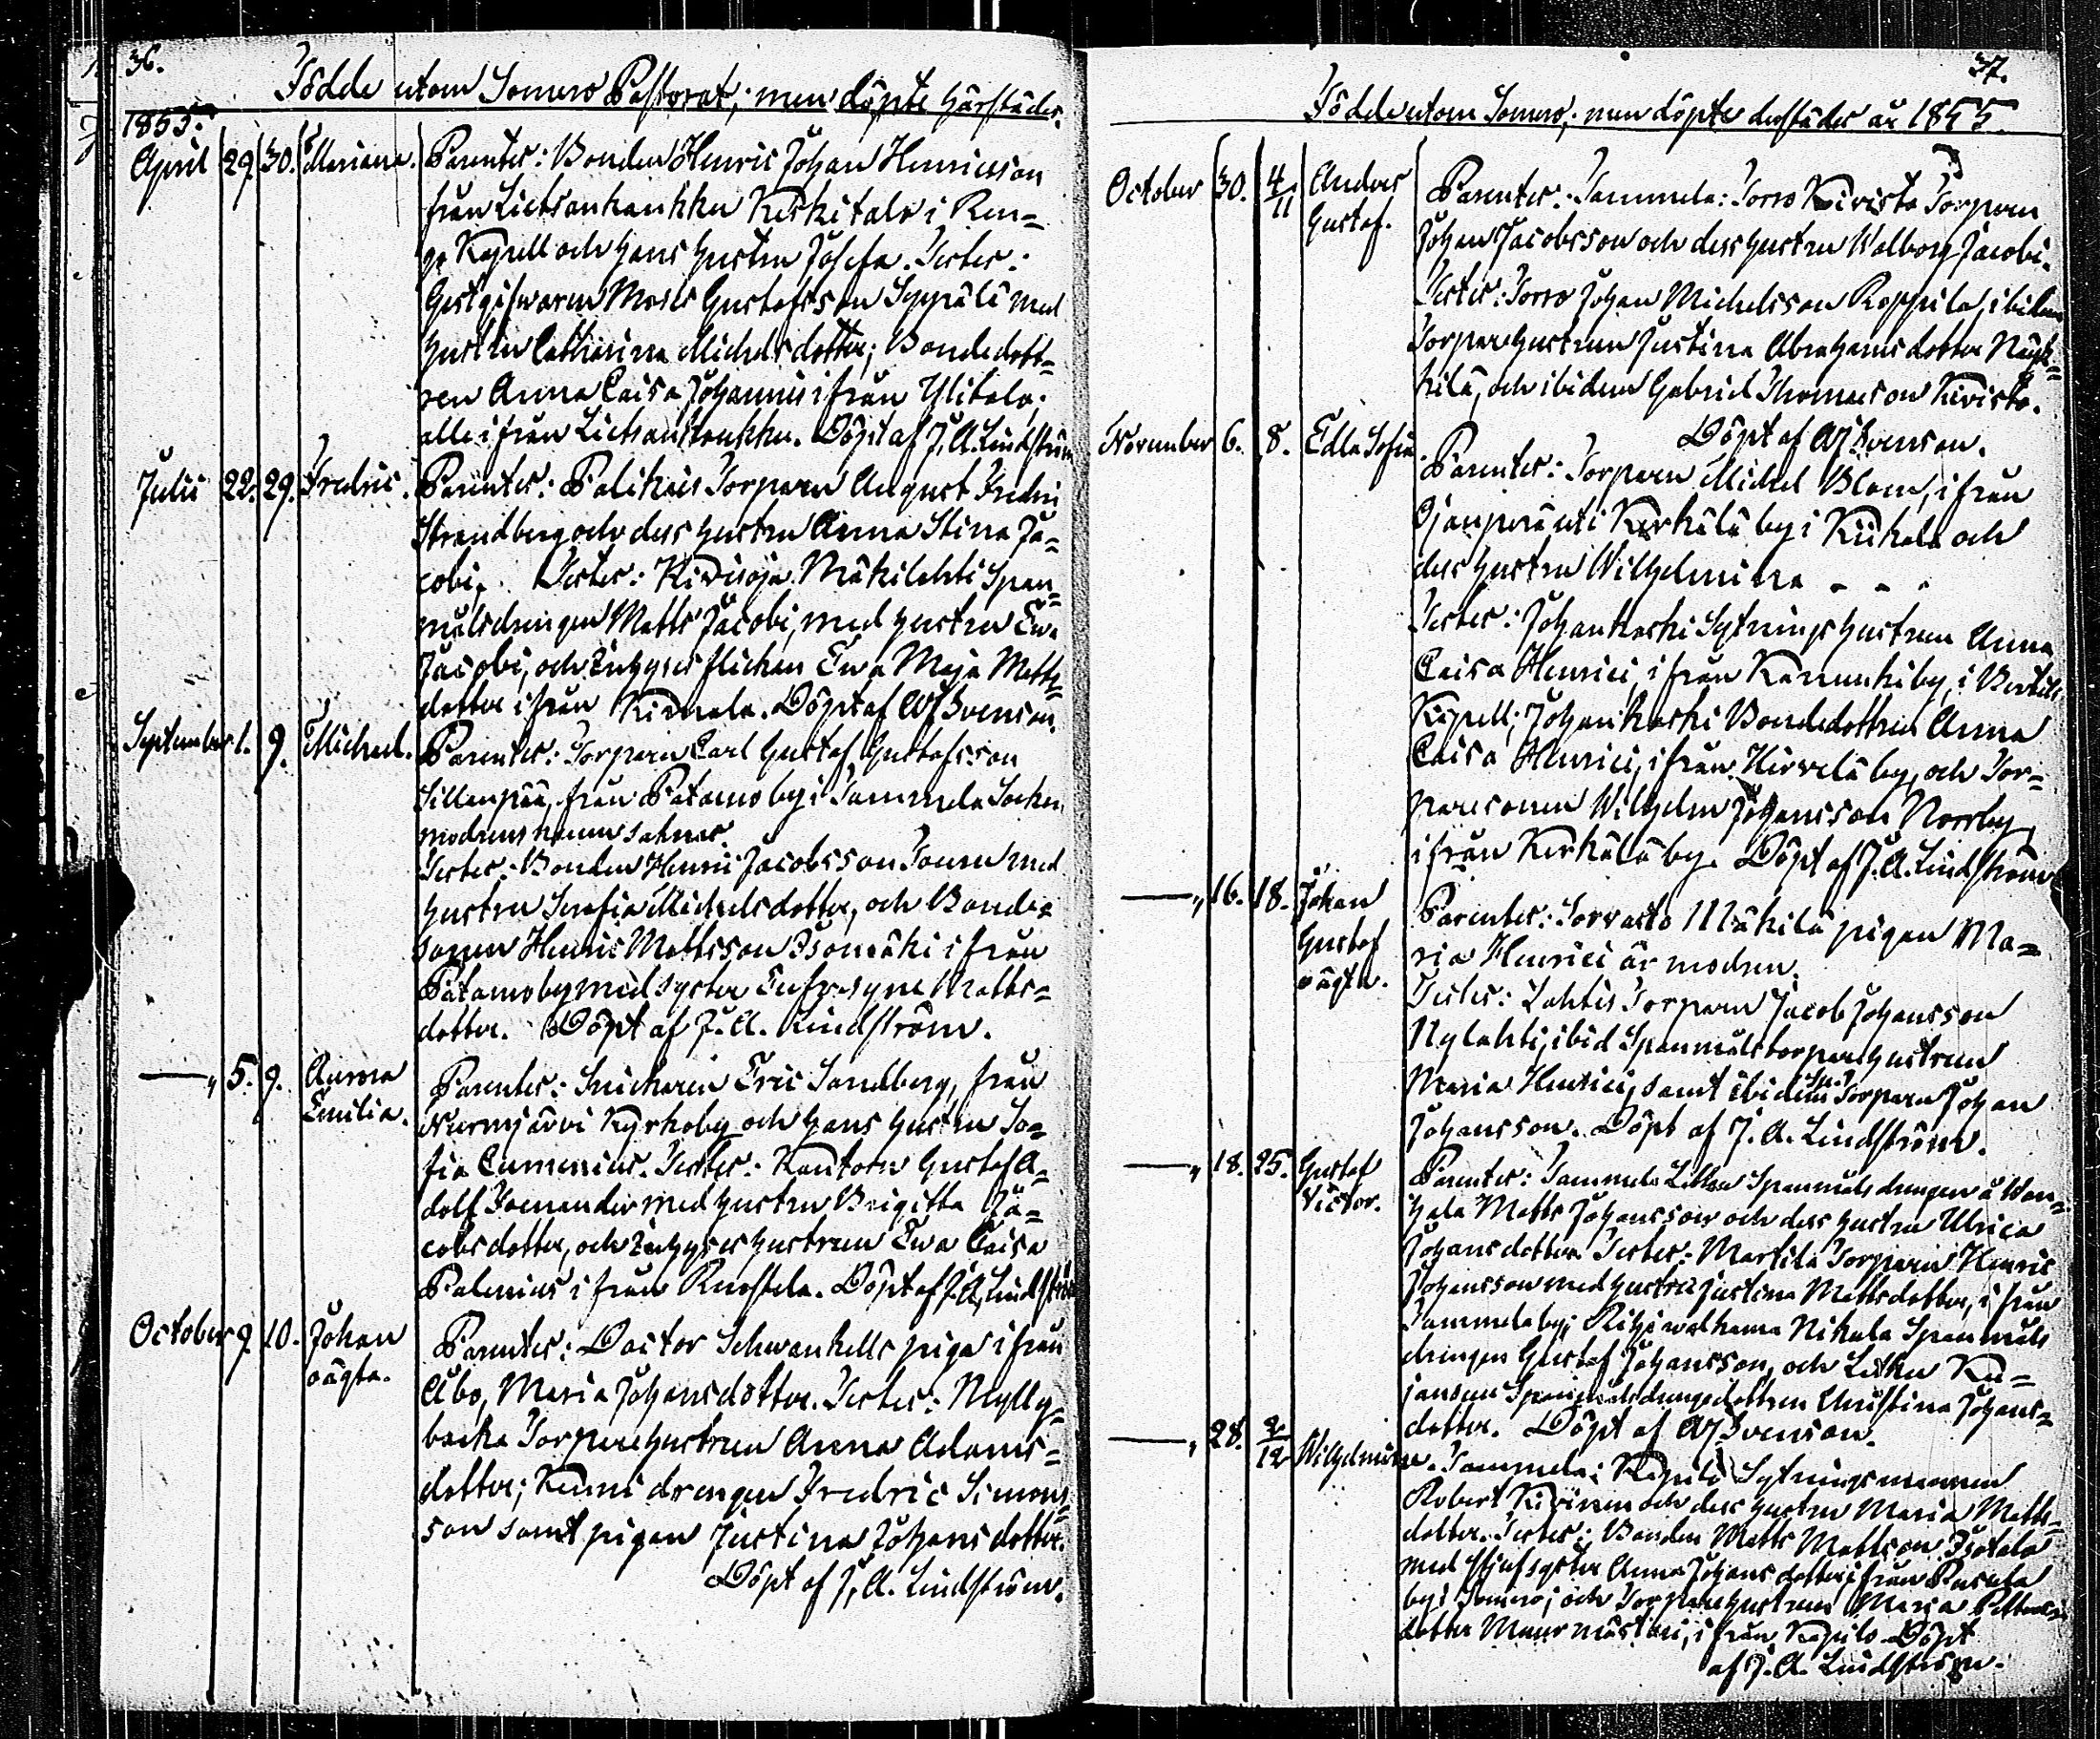 36.
Födde utom Somero Pastorat, men döpte härstädes.
1855.
April 29. 30. Mariana. Parentes: Bonden Henric Johan Henricsson
från Lietsankankku Koskitalo i
Kapell och hans hustru Josefa. Testes:
Gestgifwaren Moses Gustafsson Seppälä med
hustru Catharina Michelsdotter; Bondedott=
ren Anna Caisa Johannis ifrån Ylitalo.
alle ifrån Döpt af J. A. Lindström
Julii 22. 29. Fredric. Parentes: Palikais Torparen August Fredric
Strandberg och dess hustru Anna Stina Ja=
cobi. Testes: Kivisoja Mäkilähti Span=
målsdrengen Matts Jacobi, med hustru Ewa
Jacobi, och Inhyses flickan Ewa Maja Matts=
dotter ifrån Döpt af AJSvenson.
September 1. 9. Michael. Parentes: Torparen Carl Gustaf Gustafsson
Sillanpää, från Patamo by i Tammela Socken
modrens namn saknas.
Testes: Bonden Henric Jacobsson med
hustru Serafia Michelsdotter, och Bonde=
sonen Henric Mattsson Isomäki ifrån
Patamo by med syster Eufrosyne Matts=
dotter. Döpt af J. A. Lindström.
—„ 5. 9. Aurora
Emilia. Parentes: Snickaren Eric Sandberg, från
Nurmijärvi Kyrkoby och hans hustru So=
fia Cumenius. Testes: Kantorn Gustaf A=
dolf med hustru Brigitta Ja=
cobsdotter, och Inhyses hustrun Ewa Caisa
Palenius ifrån Ruostela. Döpt af J. A. Lindström
October 9. 10. Johan
oägta. Parentes: Doctor Schwankells piga ifrån
Åbo, Maria Johansdotter. Testes: Mylly=
backa Torparehustrun Anna Adams=
dotter; drengen Fredric Simons=
son samt pigan Justina Johansdotter.
Döpt af J. A. Lindström.
37.
Födde utom Somero, men döpte derstädes år 1855.
October 30. 4/11 Anders
Gustaf. Parentes: Tammela: Torro Kivisto Torparen
Johan Jacobsson och dess hustru Walborg Jacobi.
Testes: Torro Johan Michelsson Roppila, ibidem
Torparehustrun Justina Abrahamsdotter
kilä, och ibidem Gabriel Thomasson Kivisto.
Döpt af AJSvenson.
November 6. 8. Edla Sofia. Parentes: Torparen Michel Blom, ifrån
Ojanperä uti Kerkälä by i Kiikala och
dess hustru Wilhelmina - - -
Testes: Johankoski Sytningshustrun Anna
Caisa Henrici, ifrån by, i
Kapell; Johankoski Bondedottren Anna
Caisa Henrici, ifrån Hirvelä by, och Tor=
paresonen Wilhelm Johansson Norrby
ifrån Kerkälä by. Döpt af J. A. Lindström
—„ 16. 18. Johan
Gustaf
oägta. Parentes: Mäkilä pigan Ma=
ria Henrici är modren.
Testes: Lahtis Torparen Jacob Johansson
Nylahti, ibid Spanmålstorparehustrun
Maria Henrici, samt ibidem Torparen Johan
Johansson. Döpt af J. A. Lindström.
—„ 18. 25. Gustaf
Victor. Parentes: Tammela Spanmålsdrengen å
Matts Johansson och dess hustru Ulrica
Johansdotter. Testes: Martila Torparen Henric
Johansson med hustru Justina Mattsdotter, ifrån
Tammela by; Nikula Spanmåls
drengen Gustaf Johansson, och
Spanmålsdrengsdottren Christina Johans=
dotter. Döpt af AJSvenson.
—„ 28. 2/12 Wilhelmina. Tammela: Sytningsmannen
Robert Kivinen och dess hustru Maria Matts=
dotter. Testes: Bonden Matts Mattsson Isotalo
med stjufsyster Anna Johansdotter ifrån
by i Somero; och Torparehustrun Maria
dotter ifrån Döpt
af J. A. Lindström.